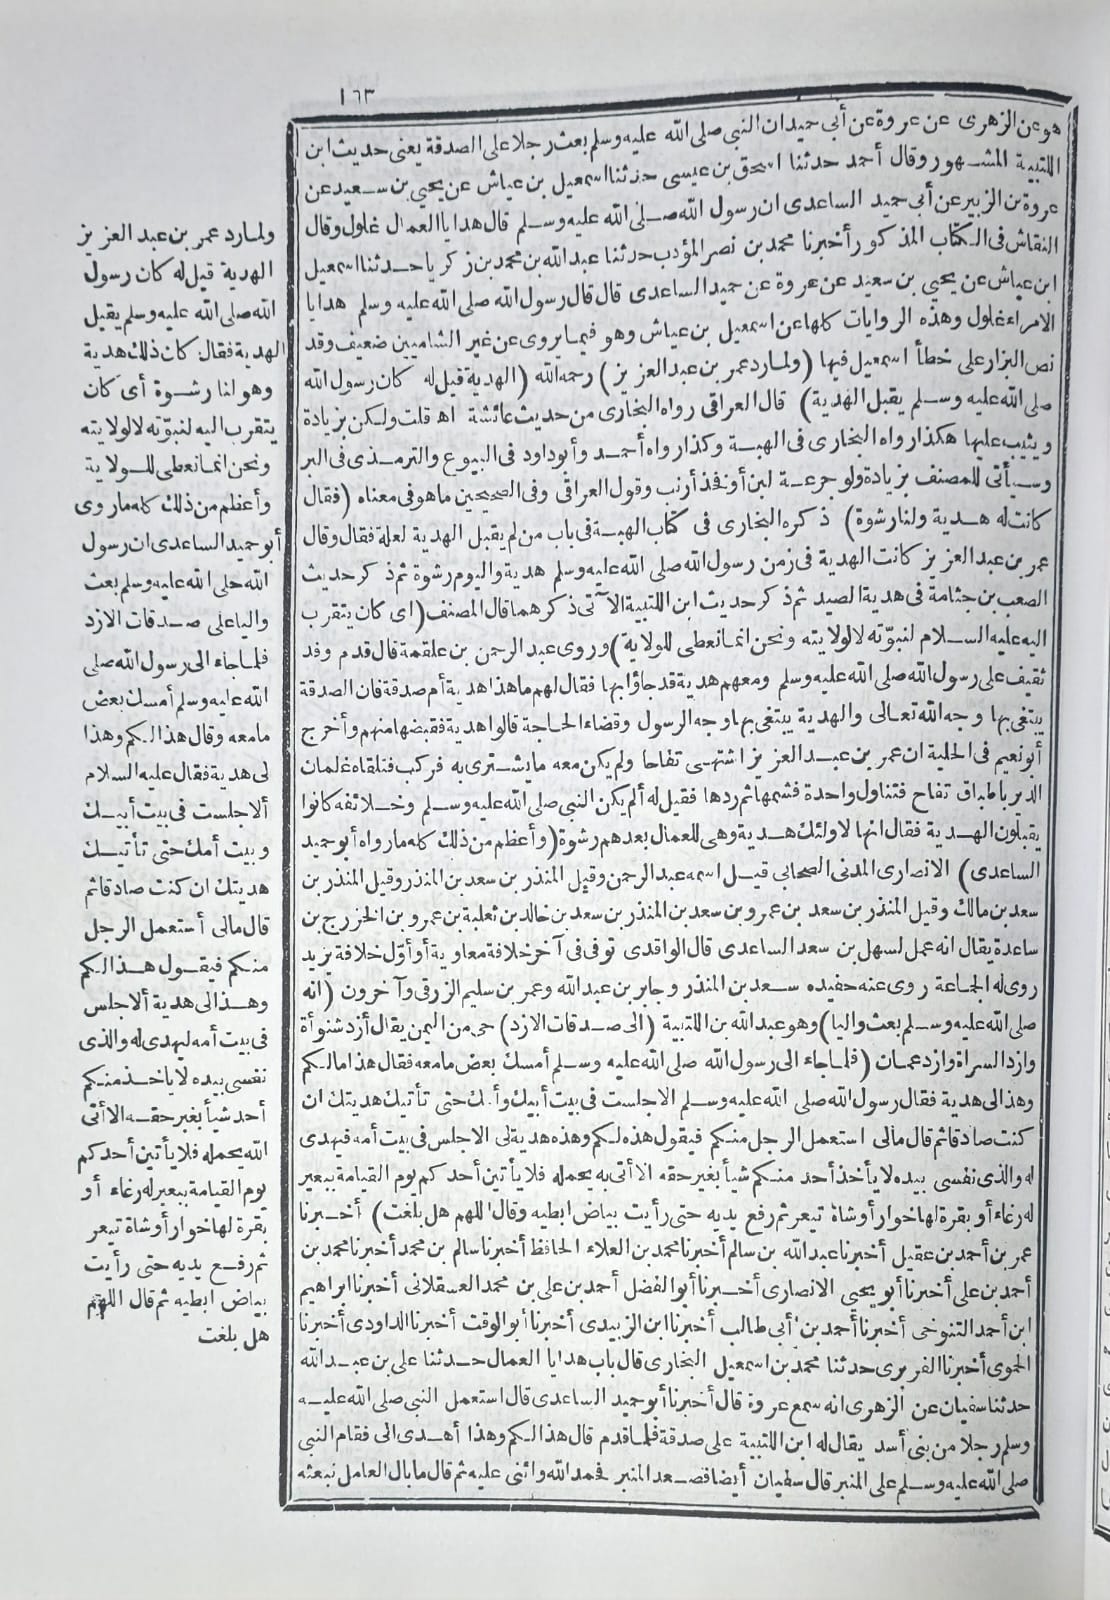 ١٦٣
هو عن الزهرى عن عروة عن أبى حميدان النبى صلى الله عليه وسلم بعث رجلا على الصدقة يعنى حديث ابن
اللتبية المشهور وقال أحمد حدثنا اسحق بن عيسى حدثنا اسمعيل بن عياش عن يحيى بن سعيد عن
عروة بن الزبير عن أبى حميد الساعدى ان رسول الله صلى الله عليه وسلم قال هدايا العمال غلول وقال
النقاش فى الكتاب المذكور أخبرنا محمد بن نصر المؤدب حدثنا عبد الله بن محمد بن زكريا حدثنا اسمعيل
ابن عياش عن يحيى بن سعيد عن عروة عن حميد الساعدى قال قال رسول الله صلى الله عليه وسلم هدايا
الامراء غلول وهذه الروايات كلها عن اسمعيل بن عياش وهو فيما يروى عن غير الشاميين ضعيف وقد
نص البزار على خطأ اسمعيل فيها (ولما رد عمر بن عبد العزيز) رحمه الله (الهدية قيل له كان رسول الله
صلى الله عليه وسلم يقبل الهدية) قال العراقى رواه البخارى من حديث عائشة اه قلت ولكن بزيادة
ويثيب عليها هكذا رواه البخارى فى الهبة وكذا رواه أحمد وأبو داود فى البيوع والترمذى فى البر
وسيأتى للمصنف بزيادة ولو جرعة لبن أو فخذ أرنب وقول العراقى وفى الصحيحين ما هو فى معناه (فقال
كانت له هدية ولنا رشوة) ذكره البخارى فى كتاب الهبة فى باب من لم يقبل الهدية لعلة فقال وقال
عمر بن عبد العزيز كانت الهدية فى زمن رسول الله صلى الله عليه وسلم هدية واليوم رشوة ثم ذكر حديث
الصعب بن جثامة فى هدية الصيد ثم ذكر حديث ابن اللتبية الآتى ذكرهما قال المصنف (اى كان يتقرب
اليه عليه السلام لنبوّته لا لولايته ونحن انما نعطى للولاية) وروى عبد الرحمن بن علقمة قال قدم وفد
ثقيف على رسول الله صلى الله عليه وسلم ومعهم هدية قد جاؤا بها فقال لهم ما هذا هدية أم صدقة فان الصدقة
يبتغى بها وجه الله تعالى والهدية يبتغى بها وجه الرسول وقضاء الحاجة قالوا هدية فقبضها منهم وأخرج
أبو نعيم فى الحلية ان عمر بن عبد العزيز اشتهى تفاحا ولم يكن معه ما يشترى به فركب فتلقاه غلمان
الدير باطباق تفاح فتناول واحدة فشمها ثم ردها فقيل له ألم يكن النبى صلى الله عليه وسلم وخلائفه كانوا
يقبلون الهدية فقال انها لاولئك هدية وهى للعمال بعدهم رشوة (وأعظم من ذلك كله ما رواه أبو حميد
الساعدى) الانصارى المدنى الصحابى قيل اسمه عبد الرحمن وقيل المنذر بن سعد بن المنذر وقيل المنذر بن
سعد بن مالك وقيل المنذر بن سعد بن عمرو بن سعد بن المنذر بن سعد بن خالد بن ثعلبة بن عمرو بن الخزرج بن
ساعدة يقال انه عمل لسهل بن سعد الساعدى قال الواقدى توفى فى آخر خلافة معاوية أو أوّل خلافة يزيد
روى له الجماعة روى عنه حفيده سعد بن المنذر وجابر بن عبد الله وعمر بن سليم الزرقى وآخرون (انه
صلى الله عليه وسلم بعث واليا) وهو عبد الله بن اللتبية (الى صدقات الازد) حى من اليمن يقال أزد شنوأة
وازد السراة وازد عمان (فلما جاء الى رسول الله صلى الله عليه وسلم أمسك بعض ما معه فقال هذا مالكم
وهذا لى هدية فقال رسول الله صلى الله عليه وسلم الا جلست فى بيت أبيك وأمك حتى تأتيك هديتك ان
كنت صادقا ثم قال مالى استعمل الرجل منكم فيقول هذه لكم وهذه هدية لى الا جلس فى بيت أمه فيهدى
له والذى نفسى بيده لا يأخذ أحد منكم شيأ بغير حقه الا أتى به يحمله فلا يأتين أحدكم يوم القيامة ببعير
له رغاء أو بقرة لها خوار أو شاة تيعر ثم رفع يديه حتى رأيت بياض ابطيه وقال اللهم هل بلغت) أخبرنا
عمر بن أحمد بن عقيل أخبرنا عبد الله بن سالم أخبرنا محمد بن العلاء الحافظ أخبرنا سالم بن محمد أخبرنا محمد بن
أحمد بن على أخبرنا أبو يحيى الانصارى أخبرنا أبو الفضل أحمد بن على بن محمد العسقلانى أخبرنا ابراهيم
ابن أحمد التنوخى أخبرنا أحمد بن أبى طالب أخبرنا ابن الزبيدى أخبرنا أبو الوقت أخبرنا الداودى أخبرنا
الحموى أخبرنا الفربرى حدثنا محمد بن اسمعيل البخارى قال باب هدايا العمال حدثنا على بن عبد الله
حدثنا سفيان عن الزهرى انه سمع عروة قال أخبرنا أبو حميد الساعدى قال استعمل النبى صلى الله عليه
وسلم رجلا من بنى أسد يقال له ابن اللتبية على صدقة فلما قدم قال هذا لكم وهذا أهدى الى فقام النبى
صلى الله عليه وسلم على المنبر قال سفيان أيضا فصعد المنبر فحمد الله واثنى عليه ثم قال ما بال العامل نبعثه
ولما رد عمر بن عبد العزيز
الهدية قيل له كان رسول
الله صلى الله عليه وسلم يقبل
الهدية فقال كان ذلك هدية
وهو لنا رشوة أى كان
يتقرب اليه لنبوّته لا لولايته
ونحن انما نعطى للولاية
وأعظم من ذلك كله ما روى
أبو حميد الساعدى ان رسول
الله صلى الله عليه وسلم بعث
واليا على صدقات الازد
فلما جاء الى رسول الله صلى
الله عليه وسلم أمسك بعض
ما معه وقال هذا لكم وهذا
لى هدية فقال عليه السلام
ألا جلست فى بيت أبيك
وبيت أمك حتى تأتيك
هديتك ان كنت صادقا ثم
قال مالى أستعمل الرجل
منكم فيقول هذا لكم
وهذا لى هدية ألا جلس
فى بيت أمه ليهدى له والذى
نفسى بيده لا يأخذ منكم
أحد شيأ بغير حقه الا أتى
الله يحمله فلا يأتين أحدكم
يوم القيامة ببعير له رغاء أو
بقرة لها خوار أو شاة تيعر
ثم رفع يديه حتى رأيت
بياض ابطيه ثم قال اللهم
هل بلغت